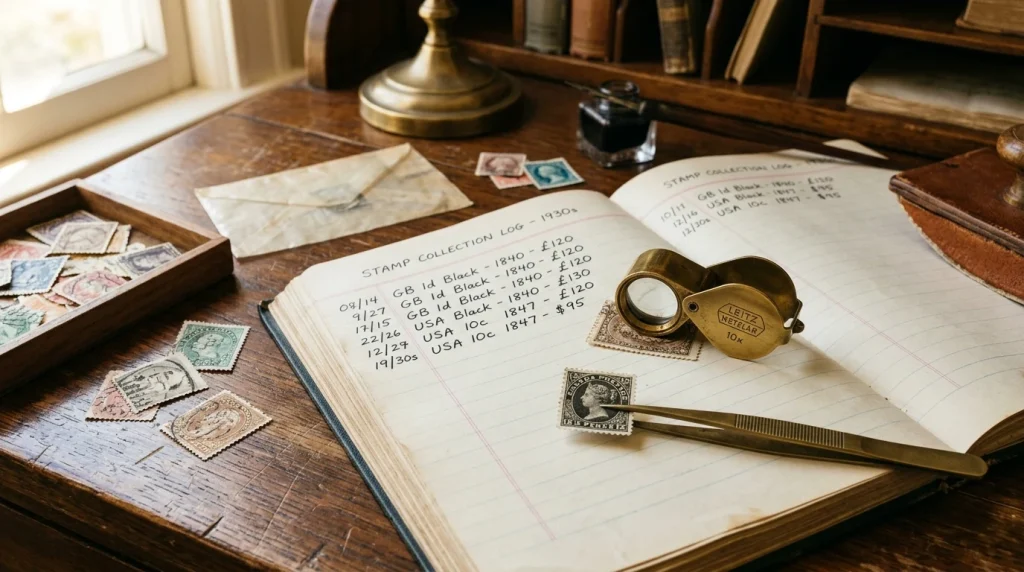 STAMP COLLECTION LOG - 1930s
08/14 GB 1d Black - 1840 - £120
9/27 GB 1d Black - 1840 - £120
17/15 GB 1d Black - 1840 - £120
22/26 USA Black - 1840 - £130
12/27 USA 10c 1847 - £120
19/30s USA 10c 1847 - $95
STAMP COLLECTION LOG -
GB 1d Black - 1840 -
12/16 USA Black - 1847 - $95
12/30s USA 10c 1847 - $95
LEITZ
10x